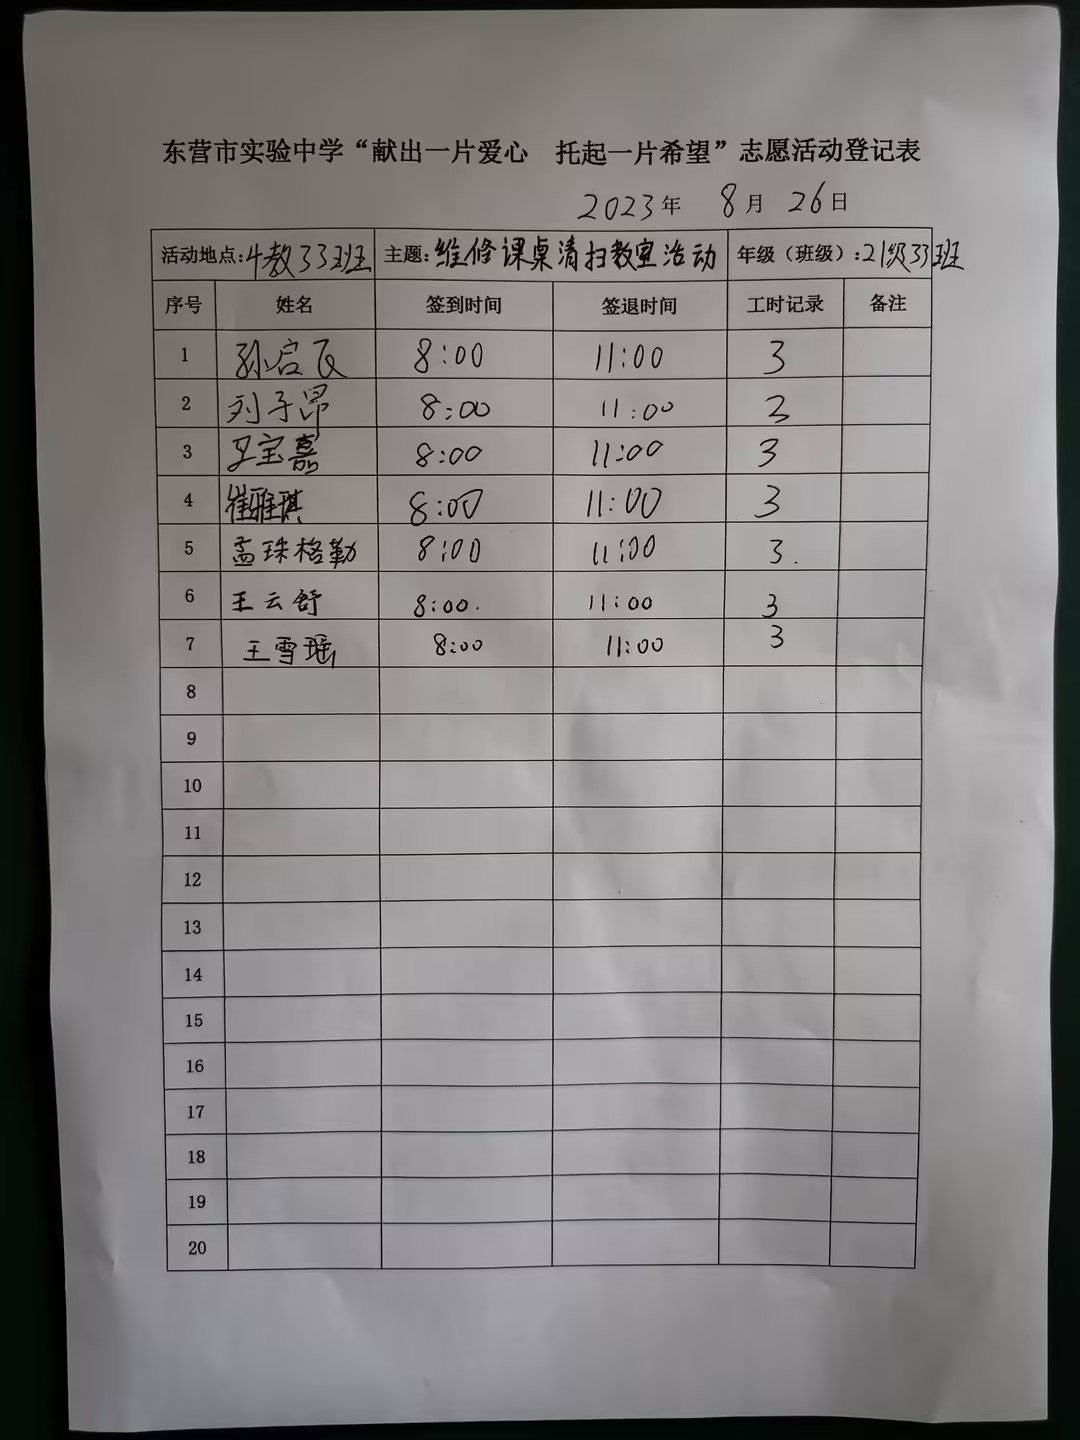 东营市实验中学“献出一片爱心 托起一片希望”志愿活动登记表
2023年 8月 26日
活动地点:4教33班 主题:维修课桌清扫教室活动 年级（班级）:21级33班
序号 姓名 签到时间 签退时间 工时记录 备注
1 孙启 8:00 11:00 3
2 刘子昂 8:00 11:00 3
3 王宝嘉 8:00 11:00 3
4 崔雅琪 8:00 11:00 3
5 孟珠格勒 8:00 11:00 3.
6 王云舒 8:00. 11:00 3
7 王雪瑶 8:00 11:00 3
8
9
10
11
12
13
14
15
16
17
18
19
20